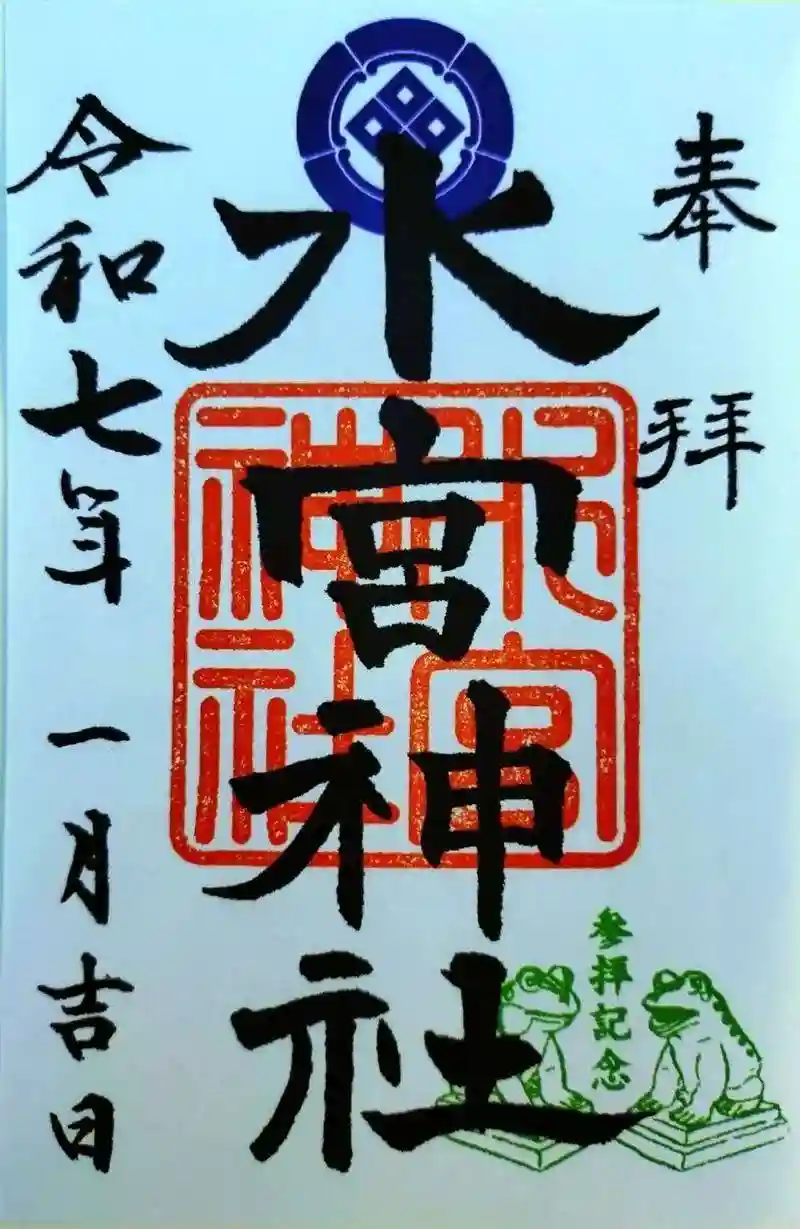 奉拝
水宮神社
水宮神社
参拝記念
令和七年 一月吉日